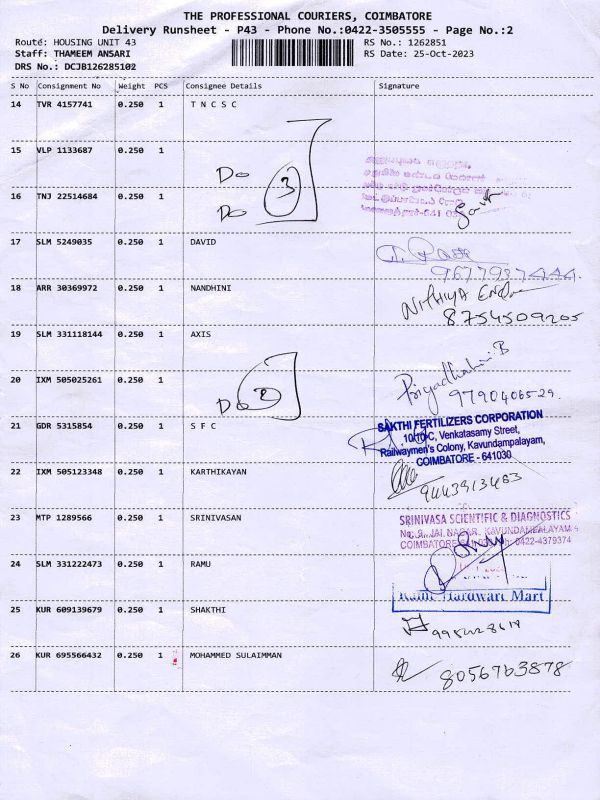 THE PROFESSIONAL COURIERS, COIMBATORE
Delivery Runsheet - P43 - Phone No.:0422-3505555 - Page No.:2
Route: HOUSING UNIT 43 RS No.: 1262851
Staff: THAMEEM ANSARI RS Date: 25-Oct-2023
DRS No.: DCJB126285102
S No Consignment No Weight PCS Consignee Details Signature
14 TVR 4157741 0.250 1 T N C S C
15 VLP 1133687 0.250 1
Do 3
16 TNJ 22514684 0.250 1
Do
17 SLM 5249035 0.250 1 DAVID
9677937444
18 ARR 30369972 0.250 1 NANDHINI NITHIYA
8754509205
19 SLM 331118144 0.250 1 AXIS
Priyadhahini B
20 IXM 505025261 0.250 1 9790406529.
Do 2
21 GDR 5315854 0.250 1 S F C SAKTHI FERTILIZERS CORPORATION
10/10-C, Venkatasamy Street,
Railwaymen's Colony, Kavundampalayam,
COIMBATORE - 641030
22 IXM 505123348 0.250 1 KARTHIKAYAN
9443913463
23 MTP 1289566 0.250 1 SRINIVASAN SRINIVASA SCIENTIFIC & DIAGNOSTICS
JAI NAGAR, KAVUNDAMPALAYAM
COIMBATORE 0422-4379374
24 SLM 331222473 0.250 1 RAMU
Hardware Mart
25 KUR 609139679 0.250 1 SHAKTHI
26 KUR 695566432 0.250 1 MOHAMMED SULAIMMAN 8056763878